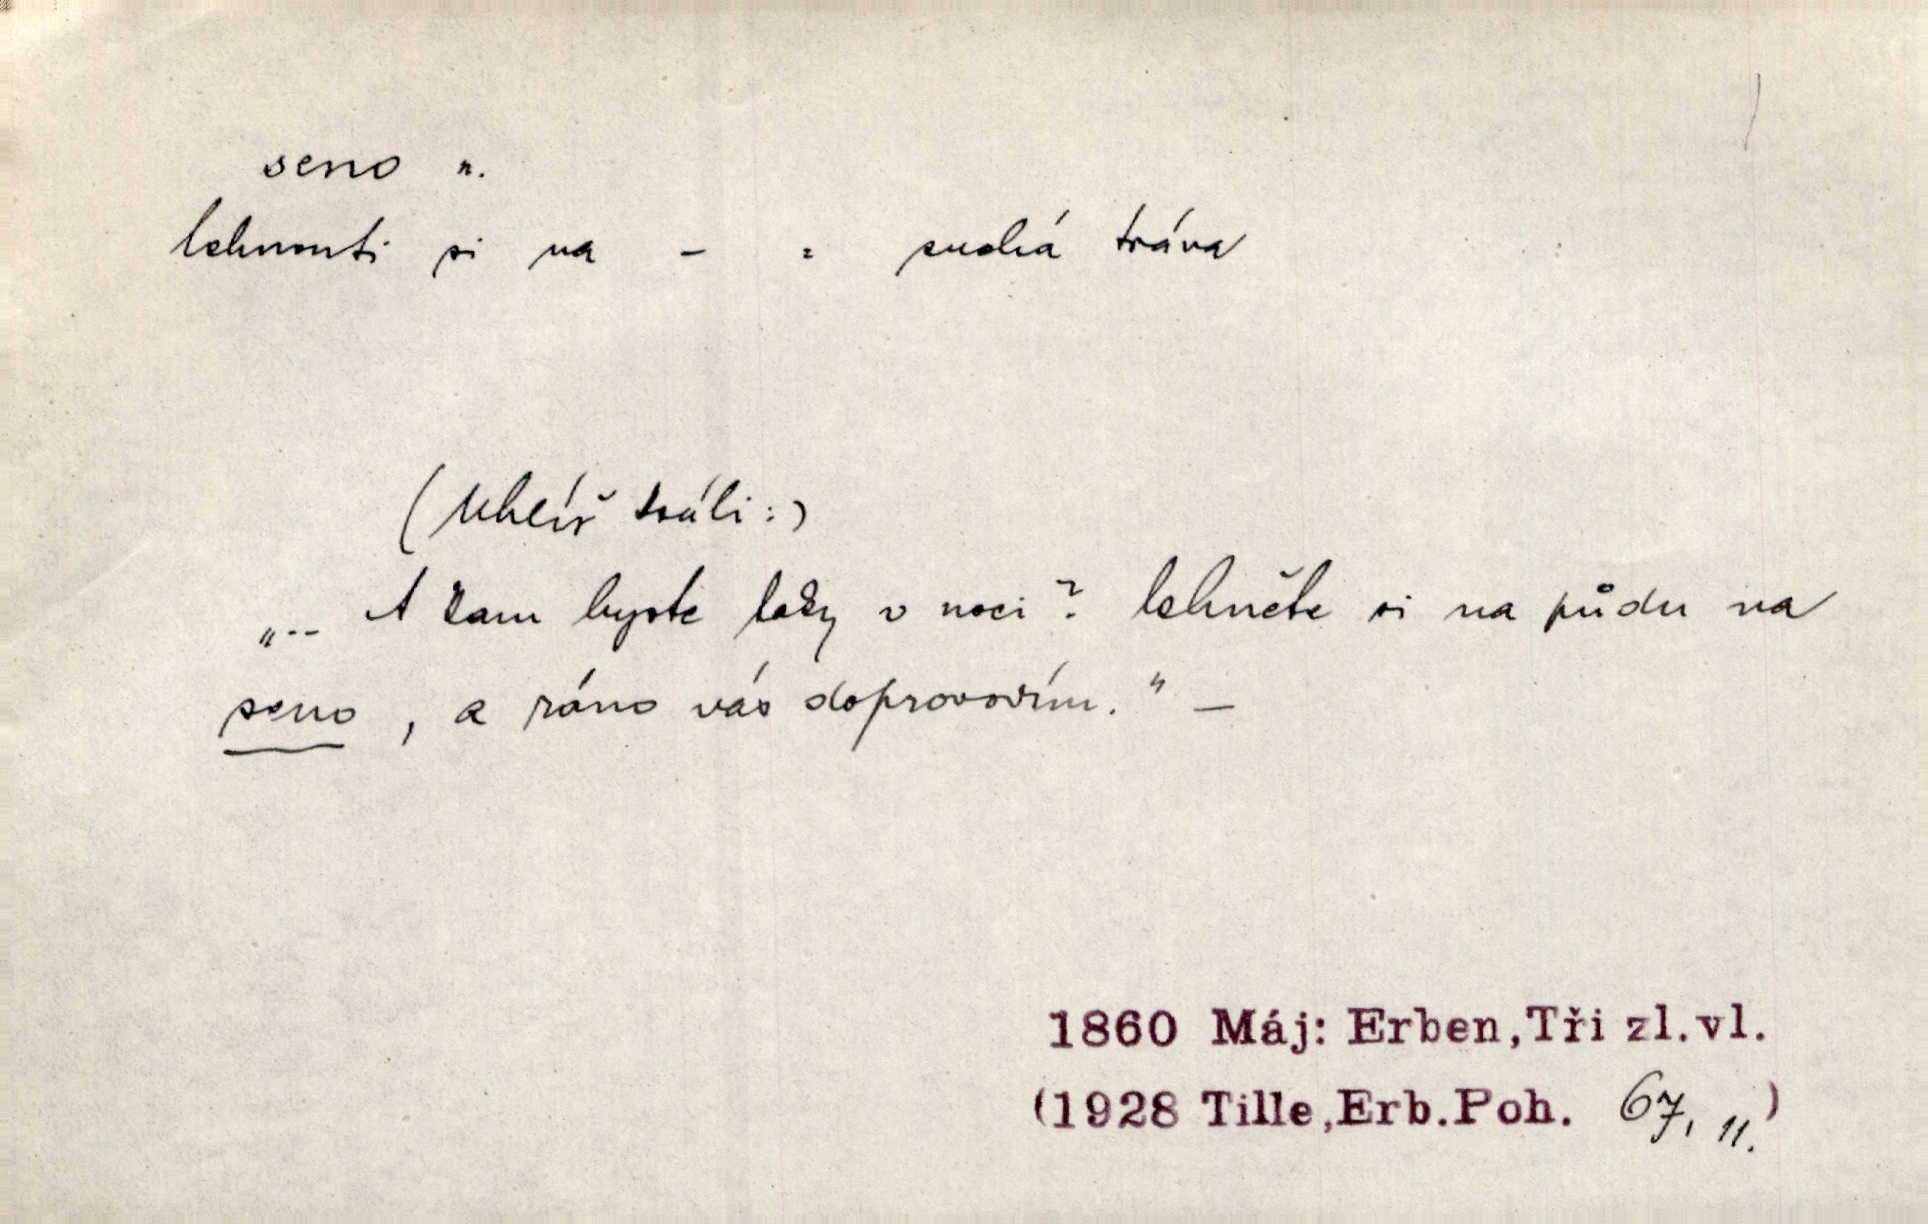 seno n.
lehnouti si na - = suchá tráva
(Uhlíř králi:)
„.. A kam byste teky v noci? lehněte si na půdu na
seno, a ráno vás doprovodím." —
1860 Máj: Erben, Tři zl. vl.
(1928 Tille, Erb. Poh. 67, 11.)